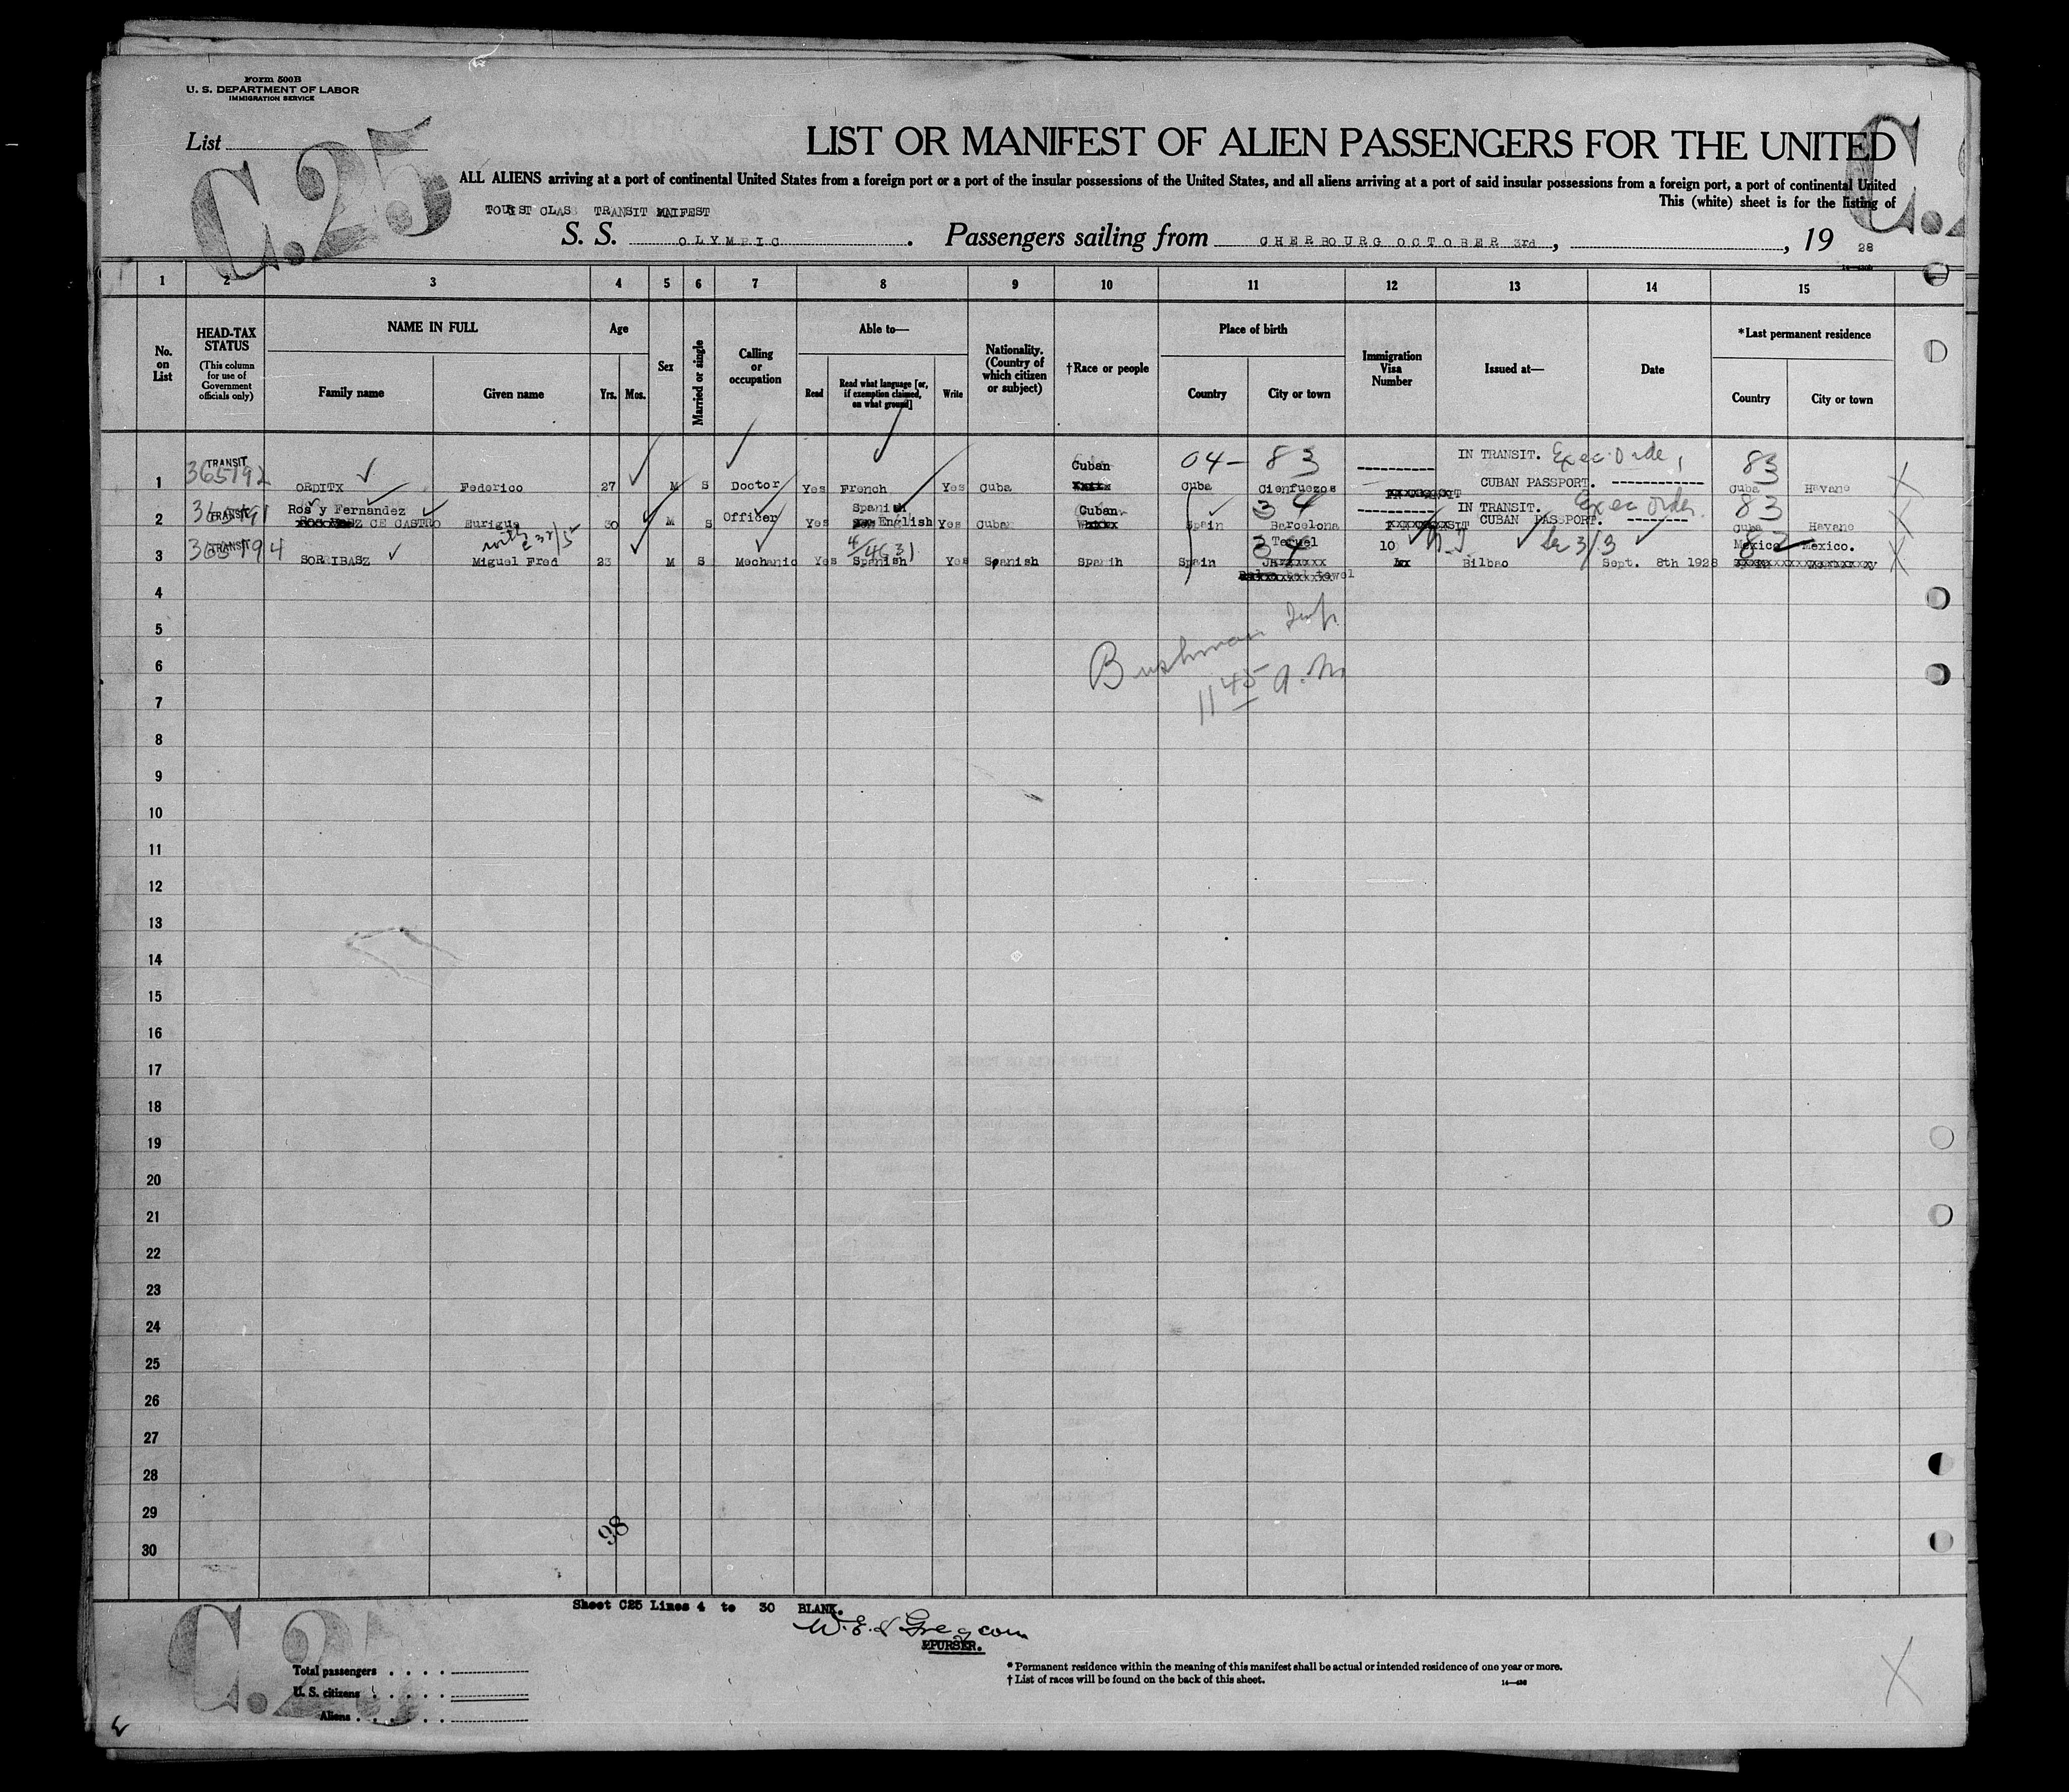 Form 500B
U. S. DEPARTMENT OF LABOR
IMMIGRATION SERVICE
List
C.25
C.
LIST OR MANIFEST OF ALIEN PASSENGERS FOR THE UNITED
ALL ALIENS arriving at a port of continental United States from a foreign port or a port of the insular possessions of the United States, and all aliens arriving at a port of said insular possessions from a foreign port, a port of continental United
This (white) sheet is for the listing of
TOURIST CLASS TRANSIT MNIFEST
S. S. OLYMPIC . Passengers sailing from CHERBOURG OCTOBER 3rd, , 19 28
1 2 3 4 5 6 7 8 9 10 11 12 13 14 15
No. on List
HEAD-TAX STATUS
(This column for use of Government officials only)
NAME IN FULL
Family name Given name
Age
Yrs. Mos.
Sex
Married or single
Calling or occupation
Able to—
Read
Read what language [or, if exemption claimed, on what ground]
Write
Nationality. (Country of which citizen or subject)
†Race or people
Place of birth
Country City or town
Immigration Visa Number
Issued at—
Date
*Last permanent residence
Country City or town
1 TRANSIT 365192 ORDITX Federico 27 M S Doctor Yes French Yes Cuba Cuban 04- 83 Cuba Cienfuegos IN TRANSIT. CUBAN PASSPORT. 83 Cuba Havane
2 TRANSIT Ros y Fernandez DE CASTRO Eurigue 30 M S Officer Yes Spanish English Yes Cuba Cuban 34 Spain Barcelona IN TRANSIT. CUBAN PASSPORT. Exec Order. 83 Cuba Havane
3 TRANSIT 365194 SORRIBASZ Miguel Fred 23 M S Mechanic Yes Spanish Yes Spanish Spanih Spain Teruel 34 10 Bilbao Sept. 8th 1928 Mexico Mexico.
4
5
6
Bushman Insp.
11 45 A.M
7
8
9
10
11
12
13
14
15
16
17
18
19
20
21
22
23
24
25
26
27
28
29
30
98
Sheet C25 Lines 4 to 30 BLANK.
PURSER.
C.25
Total passengers
U. S. citizens
Aliens
* Permanent residence within the meaning of this manifest shall be actual or intended residence of one year or more.
† List of races will be found on the back of this sheet.